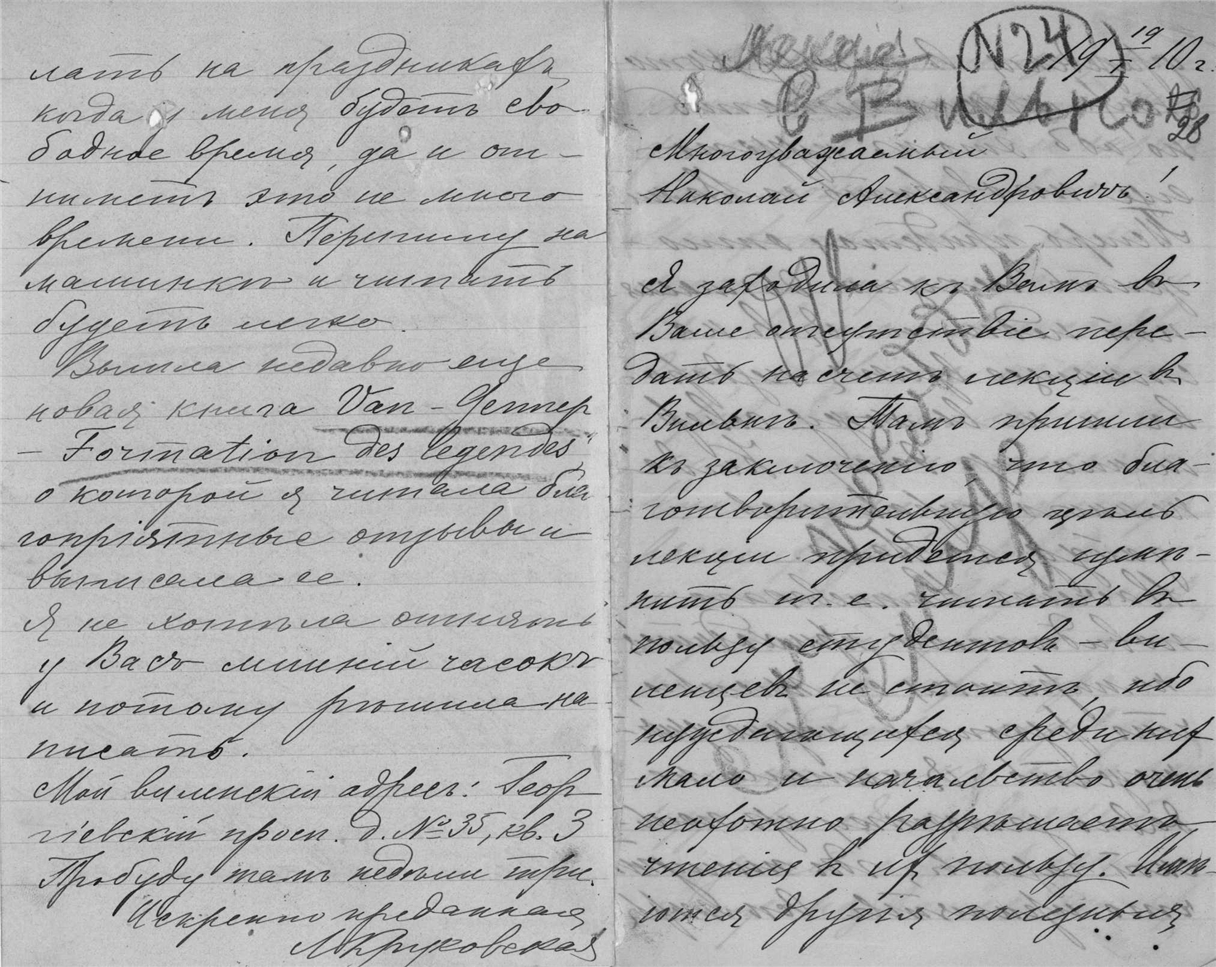 лать на праздникахъ,
когда у меня будетъ сво-
бодное время, да и от-
ниметъ это не много
времени. Перепишу на
машинкѣ и читать
будетъ легко.
Вышла недавно еще
новая книга Van-Gennep
– Formation des legendes"
о которой я читала бла
гопріятные отзывы и
выписала ее.
Я не хотѣла отнять
у Васъ лишній часокъ
и потому рѣшила на-
писать.
Мой виленскій адресъ: Геор
гіевскій просп. д. № 35, кв. 3
Пробуду тамъ недѣли три.
Искренно преданная
М Круковская
Лекція
N 24
10 г.
в Вильно
28
Многоуважаемый
Николай Александровичъ!
Я заходила къ Вамъ въ
Ваше отсутствіе пере-
дать насчетъ лекціи въ
Вильнѣ. Тамъ пришли
къ заключенію что бла-
готворительную цѣль
лекціи придется измѣ-
нить т. е. читать въ
пользу студентовъ – ви-
ленцевъ не стоитъ, ибо
нуждающихся среди них
мало и начальство очень
неохотно разрѣшаетъ
чтенія въ их пользу. Имѣ-
ются другія полезныя